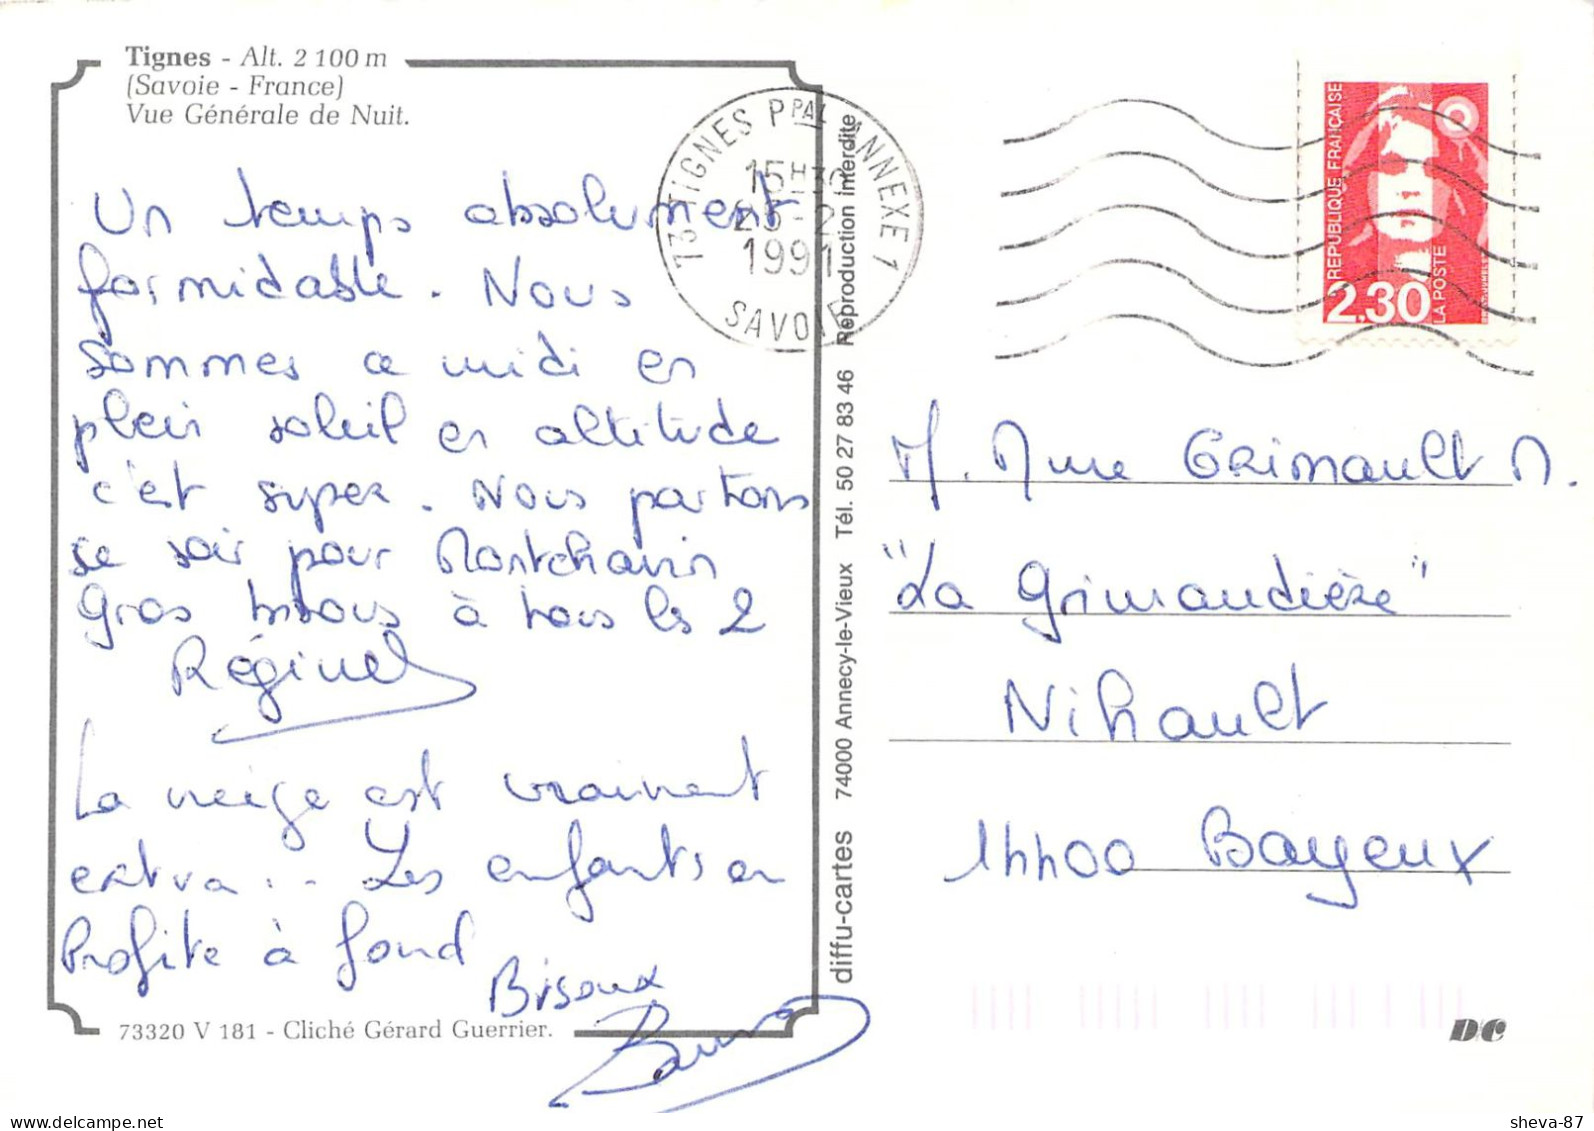 Tignes - Alt. 2 100 m
(Savoie - France)
Vue Générale de Nuit.
Un temps absolument
formidable. Nous
sommes a midi en
plein soleil en altitude
c'est super. Nous partons
ce soir pour Montchavin
Gros bisous à tous les 2
Régine
La neige est vraiment
extra... Les enfants en
Profite à fond
Bisoux
73320 V 181 - Cliché Gérard Guerrier.
diffu-cartes 74000 Annecy-le-Vieux Tél. 50 27 83 46 Reproduction interdite
73 TIGNES PPAL ANNEXE 1
15H30
25-2
1991
SAVOIE
RÉPUBLIQUE FRANÇAISE
2,30
LA POSTE
M. Mme GRIMAULT M.
"La Grimaudière"
Nihault
14400 Bayeux
D/C
www.delcampe.net
sheva-87